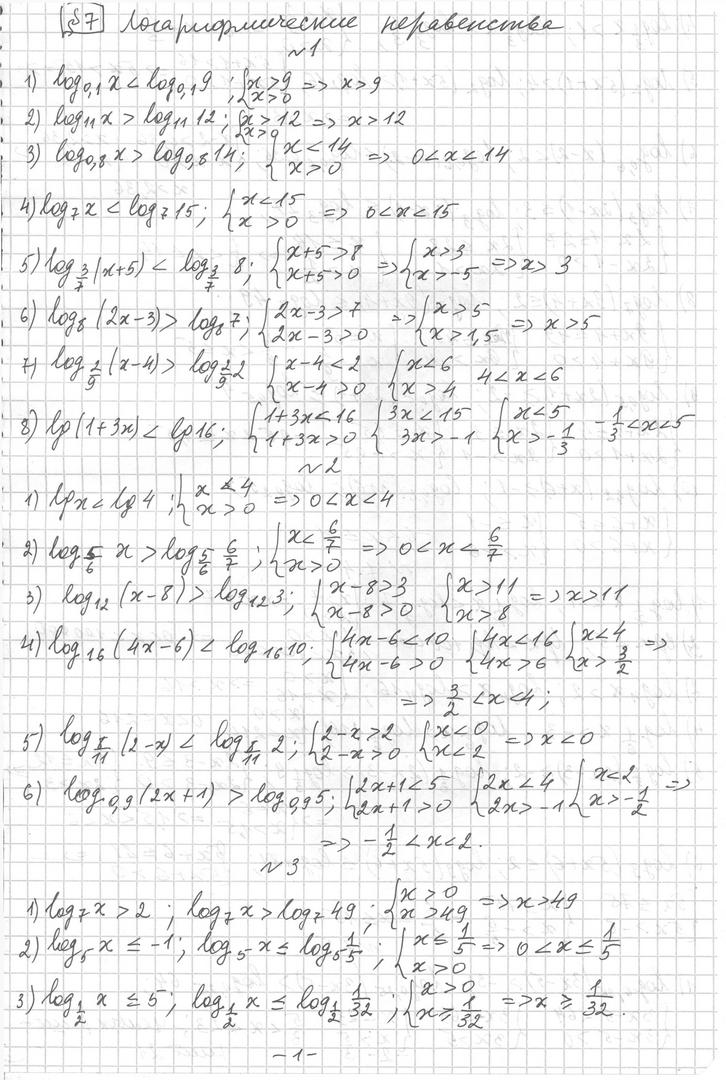 §7 Логарифмические неравенства
№1
1) log₀,₁x < log₀,₁9 ; {x>9 x>0 => x>9
2) log₁₁x > log₁₁12 ; {x>12 x>0 => x>12
3) log₀,₈x > log₀,₈14; {x<14 x>0 => 0<x<14
4) log₇x < log₇15; {x<15 x>0 => 0<x<15
5) log_{3/7}(x+5) < log_{3/7}8; {x+5>8 x+5>0 => {x>3 x>-5 => x>3
6) log₈(2x-3) > log₈7; {2x-3>7 2x-3>0 => {x>5 x>1,5 => x>5
7) log_{2/9}(x-4) > log_{2/9}2 {x-4<2 x-4>0 {x<6 x>4 4<x<6
8) lg(1+3x) < lg16; {1+3x<16 1+3x>0 {3x<15 3x>-1 {x<5 x>-1/3 -1/3<x<5
№2
1) lgx < lg4 ; {x<4 x>0 => 0<x<4
2) log_{5/6}x > log_{5/6}6/7 ; {x<6/7 x>0 => 0<x<6/7
3) log₁₂(x-8) > log₁₂3; {x-8>3 x-8>0 {x>11 x>8 => x>11
4) log₁₆(4x-6) < log₁₆10; {4x-6<10 4x-6>0 {4x<16 4x>6 {x<4 x>3/2 =>
=> 3/2<x<4;
5) log_{5/11}(2-x) < log_{5/11}2; {2-x>2 2-x>0 {x<0 x<2 => x<0
6) log₀,₉(2x+1) > log₀,₉5; {2x+1<5 2x+1>0 {2x<4 2x>-1 {x<2 x>-1/2 =>
=> -1/2<x<2.
№3
1) log₇x>2 ; log₇x > log₇49 ; {x>0 x>49 => x>49
2) log₅x ≤ -1; log₅x ≤ log₅1/5 ; {x≤1/5 x>0 => 0<x≤1/5
3) log_{1/2}x ≤ 5; log_{1/2}x ≤ log_{1/2}1/32 ; {x>0 x≥1/32 => x≥1/32.
-1-